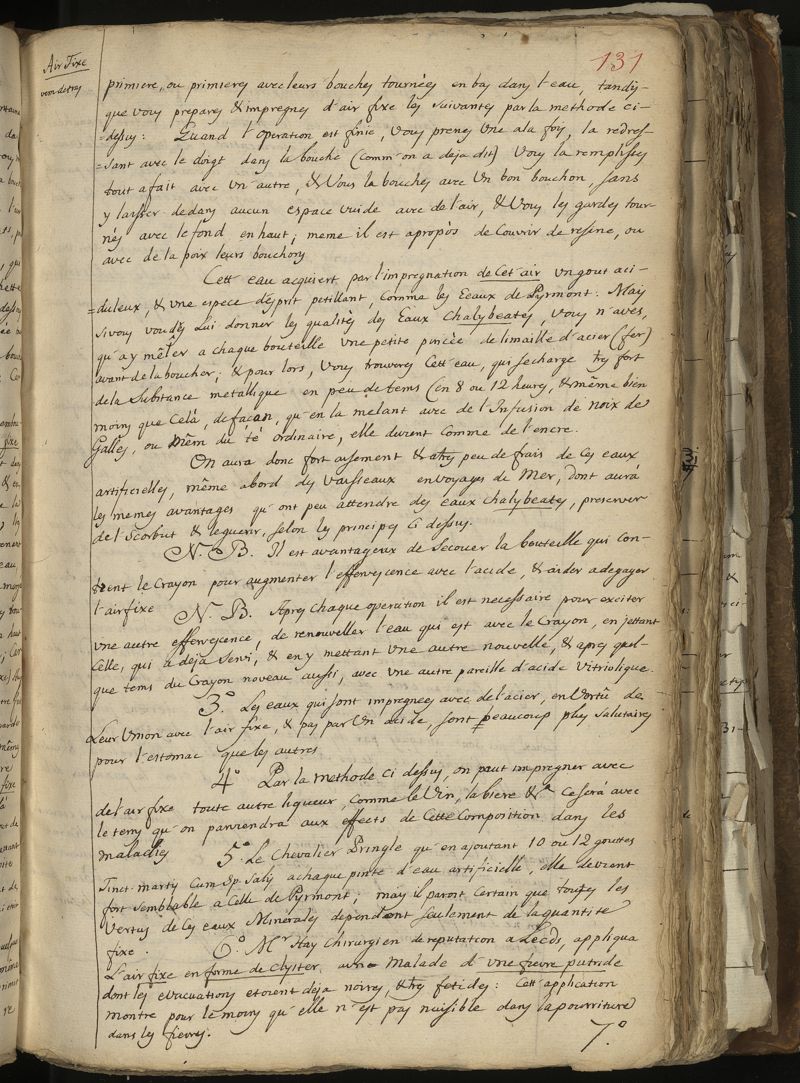 131
Air Fixe
vem detrej
primiere, ou primierej avec leurs bouchej tournéej en baj danj l'eau, tandij-
que vouj preparej & impregnej d'air fixe lej suivantej par la methode ci-
=dessuj: Quand l'operation est finie, vouj prenej une a la foij, la redres-
=sant avec le doigt danj la bouche (comm'on a deja dit) vouj la remplissej
tout a fait avec un autre, & vous la bouchej avec un bon bouchon, sans
y laisser dedanj aucun espace vuide avec de l'air, & vouj lej gardej tour-
néj avec le fond en haut; meme il est apropòs de couvrir de resine, ou
avec de la poix leurs bouchonj
Cett eau acquiert par l'impregnation de cet air un gout aci-
=duleux, & une espece d'esprit petillant, comme lej Eeaux de Pyrmont. Maij
si vouj voudéj lui donner lej qualitéj dej Eaux chalybeatéj, vouj n'avej,
qu'a y mêler a chaque bouteille une petite pincée de limaille d'acier (fer)
avant de la boucher; & pour lors, vouj trouverej cett eau, qui se charge trej fort
de la substance metallique en peu de tems (en 8 ou 12 heurej, & même bien
moinj que celà, de façan, qu'en la melant avec de l'Infusion de noix de
Galléj, ou mêm du té ordinaire, elle dvient comme de l'encre.
On aura donc fort aisement & a trej peu de frais de cej eaux
artificiellej, même abord dej vaisseaux en voyagej de Mer, dont aurá
lej memej avantagej qu'ont peu attendre dej eaux chalybeatej, preserver
de l'Scorbut & leguerir, selon lej principej ci dessuj.
N. B. Il est avantageux de secouer la bouteille qui con-
tient le Crayon pour augmenter l'effervescence avec l'acide, & aider a degager
l'air fixe N. B. Aprej chaque operation il est necessaire pour exciter
une autre effervescence, de renouveller l'eau qui est avec le Crayon, en jettant
celle, qui a déja servi, & en y mettant une autre nouvelle, & aprej quel-
que tems du Crayon noveau aussi, avec une autre pareille d'acide vitriolique.
3.° Lej eaux qui sont impregnéej avec de l'acier, en vertû de
leur union avec l'air fixe, & paj par un acide, sont beaucoup plus salutairej
pour l'estomac que lej autres
4.° Par la methode ci dessuj, on peut impregner avec
de l'air fixe toute autre liqueur, comme le vin, la bière &.a Ce será avec
le temj qu'on parviendra aux effects de cette Composition danj les
maladiej 5.° Le Chevalier Pringle qu'en ajoutant 10 ou 12 gouttes
Tinct. martij Cum Sp. Salij a chaque pinte d'eau artificielle, elle devient
fort semblable a celle de Pyrmont; maij il paroit certain que toutej les
vertuj de cej eaux Mineralej dependent seulement de la quantité
fixe. 6.° M.r Hay Chirurgien de reputation a Leeds, appliqua
l'air fixe en forme de Clyster, a un Malade d'une fievre putride
dont lej evacuationj etoient déja noirej, & trej fetidej: Cett application
montre pour le moinj qu'elle n'est paj nuisible danj la pourriture
danj lej fievrej.
7.°